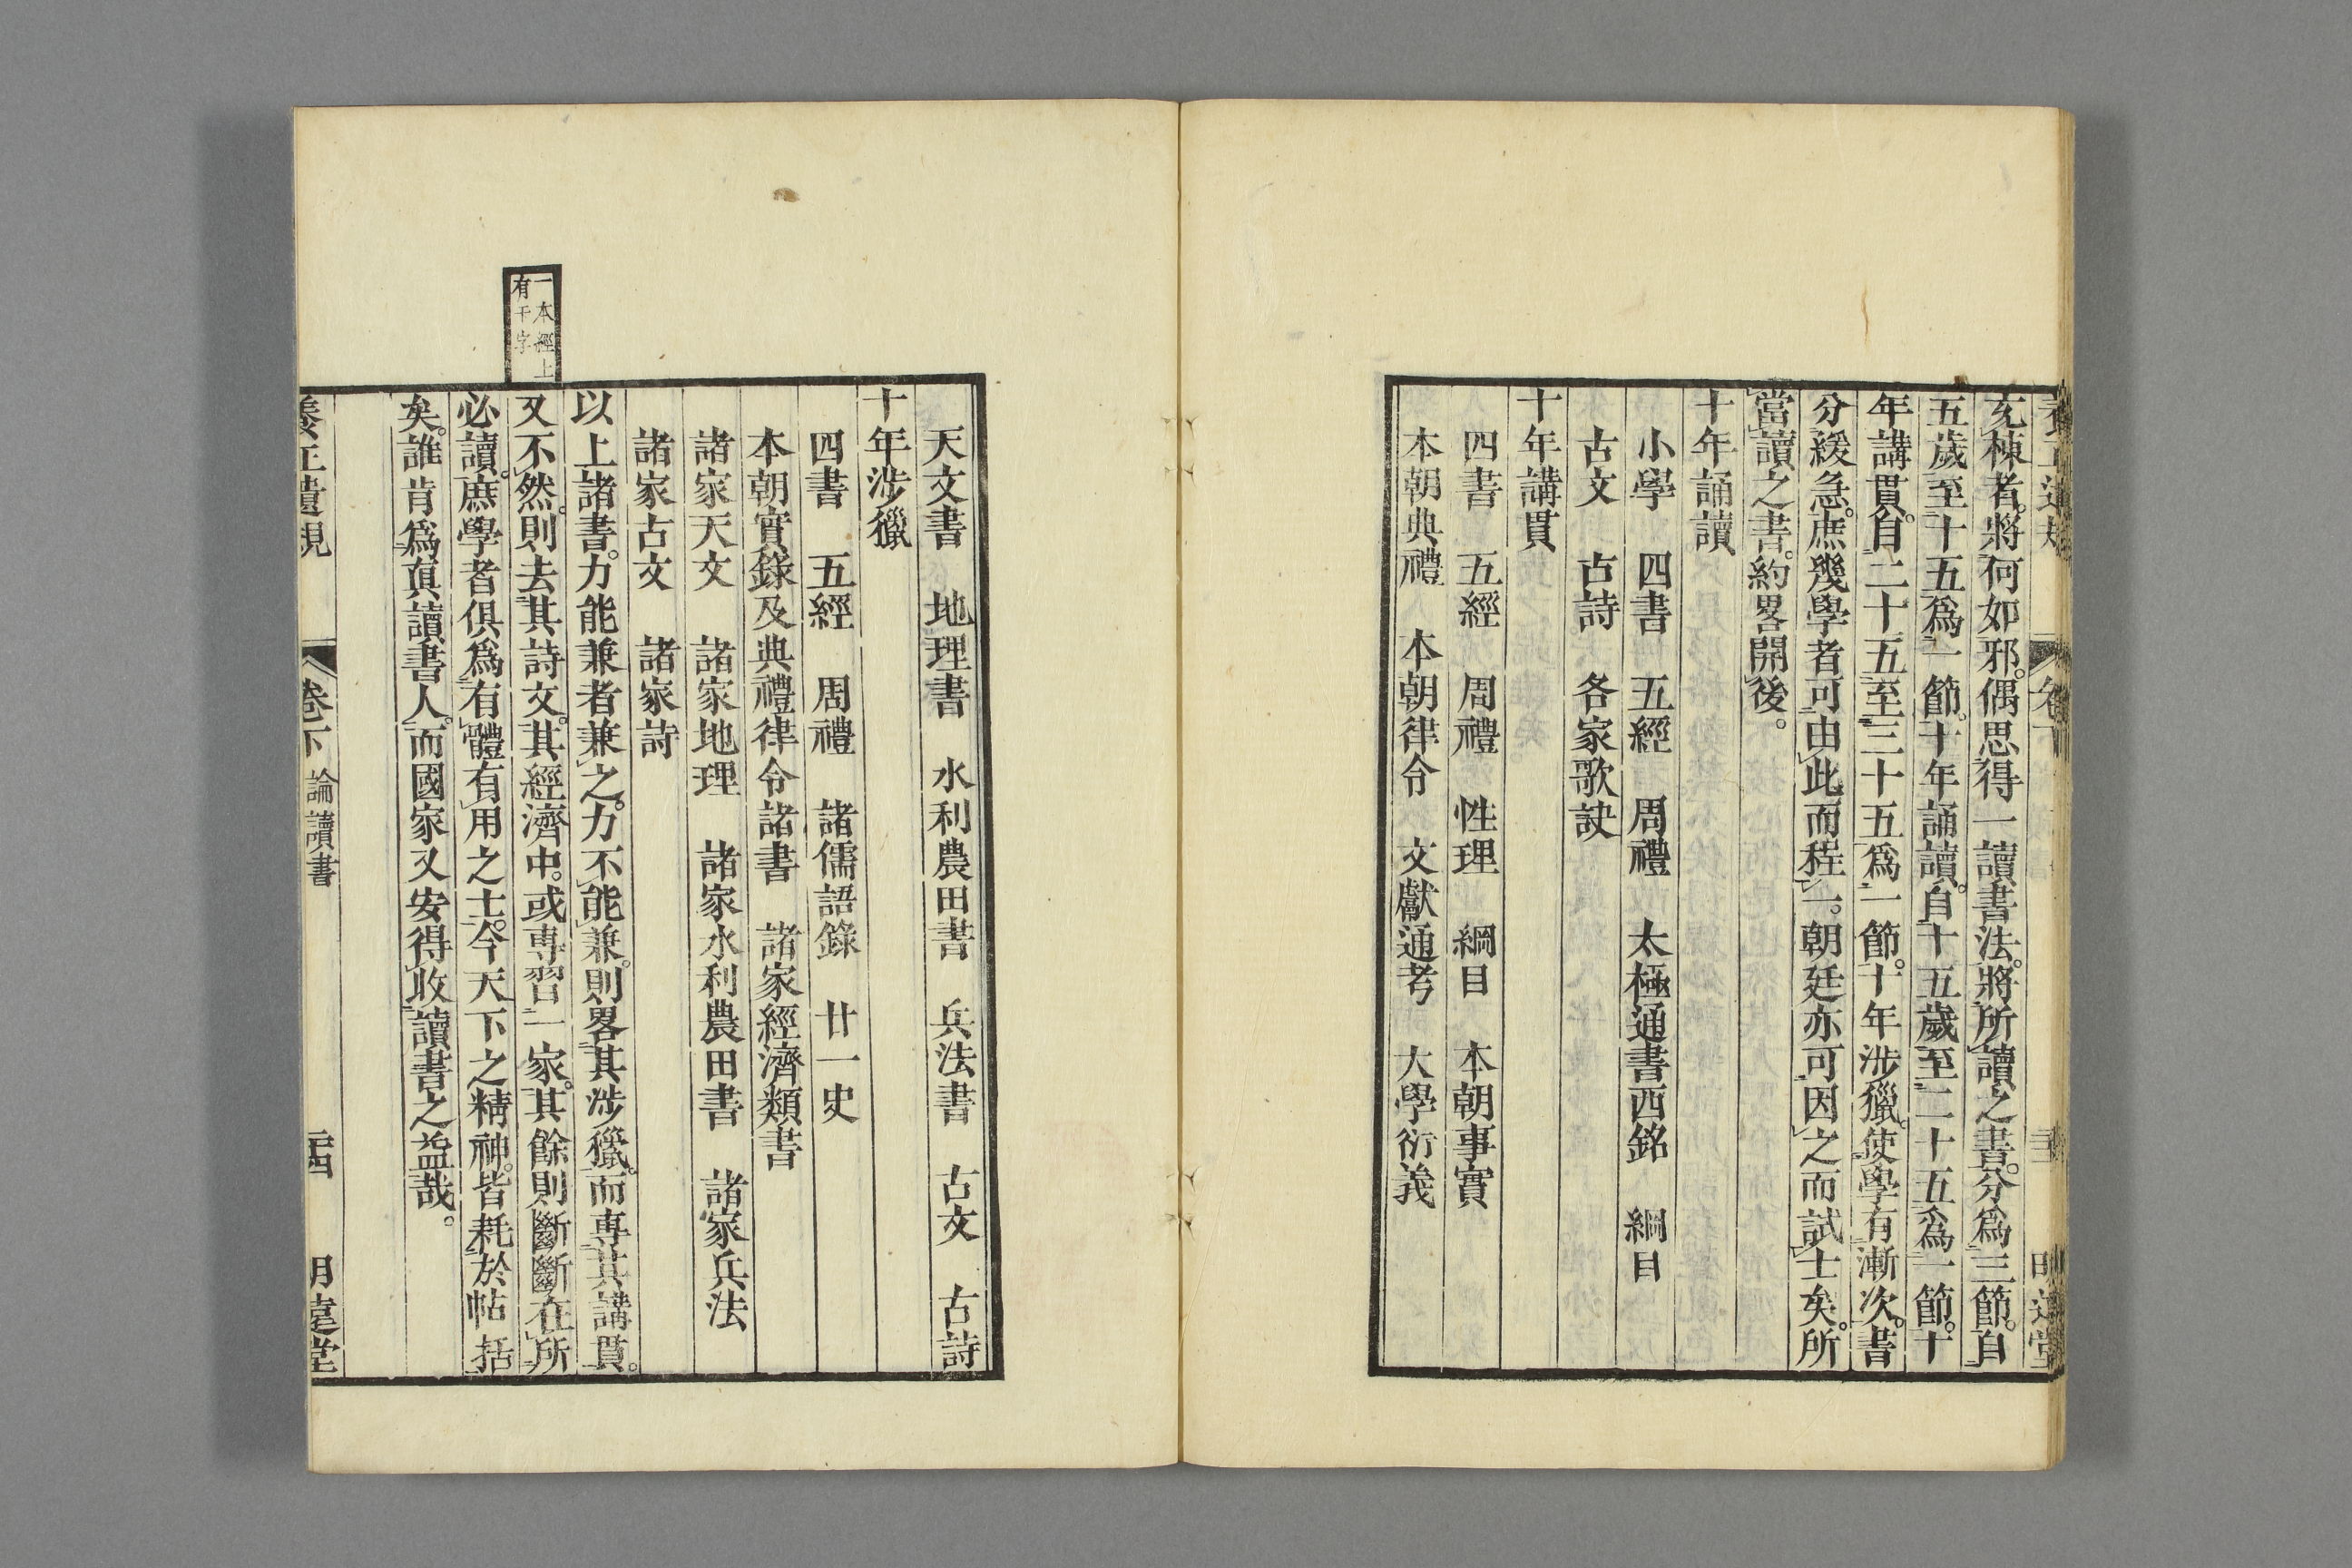 充棟者。將何如邪。偶思得一讀書法。將所讀之書。分爲三節。自
五歲至十五爲一節。十年誦讀。自十五歲至二十五爲一節。十
年講貫。自二十五至三十五爲一節。十年涉獵。使學有漸次。書
分緩急。庶幾學者可由此而程一。朝廷亦可因之而試士矣。所
當讀之書。約畧開後。
十年誦讀
小學　四書　五經　周禮　太極通書西銘　綱目
古文　古詩　各家歌訣
十年講貫
四書　五經　周禮　性理　綱目　本朝事實
本朝典禮　本朝律令　文獻通考　大學衍義
天文書　地理書　水利農田書　兵法書　古文　古詩
十年涉獵
四書　五經　周禮　諸儒語錄　廿一史
本朝實錄及典禮律令諸書　諸家經濟類書
諸家天文　諸家地理　諸家水利農田書　諸家兵法
諸家古文　諸家詩
以上諸書。力能兼者兼之。力不能兼。則畧其涉獵。而專其講貫。
又不然。則去其詩文。其經濟中。或專習一家。其餘則斷斷在所
必讀。庶學者俱爲有體有用之士。今天下之精神。皆耗於帖括
矣。誰肯爲眞讀書人。而國家又安得收讀書之益哉。
一本經上
有于字
養正遺規　卷下　論讀書